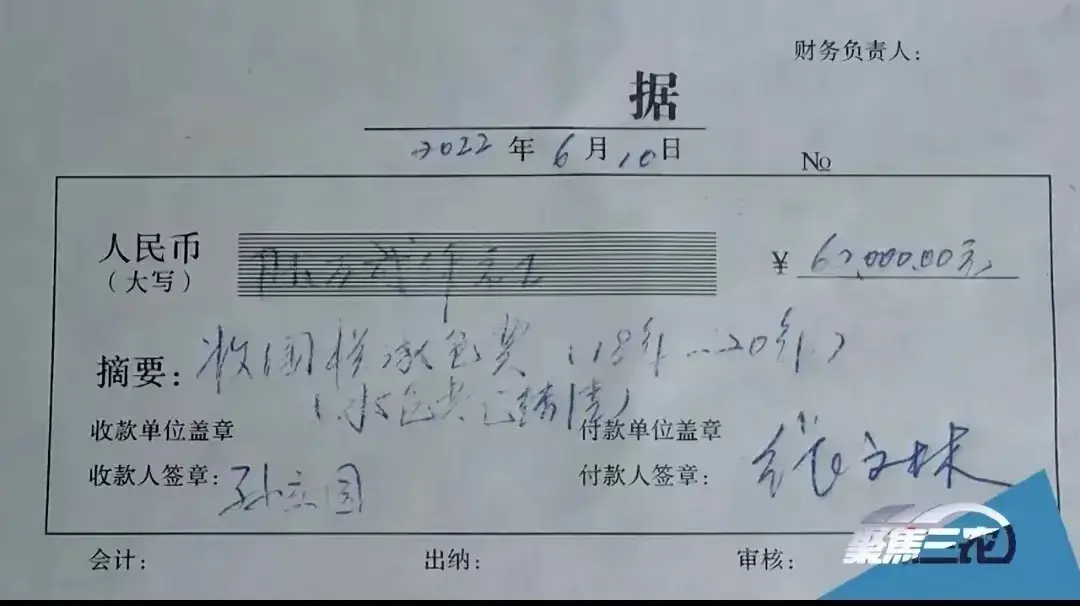 财务负责人:
据
2022 年 6 月 10 日
№
人民币
(大写)
陆万 ¥ 62,000.00元
摘要: 收国 承包费 (18年...20年)
(承包费已结清)
收款单位盖章 付款单位盖章
收款人签章: 孙立国 付款人签章: 张文林
会计: 出纳: 审核:
聚焦三农